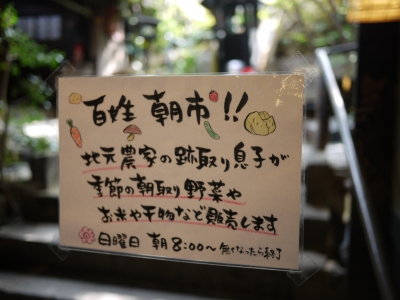 百姓 朝市!!
地元農家の跡取り息子が
季節の朝取り野菜や
お米や干物など販売します
日曜日 朝8:00〜 無くなったら終了